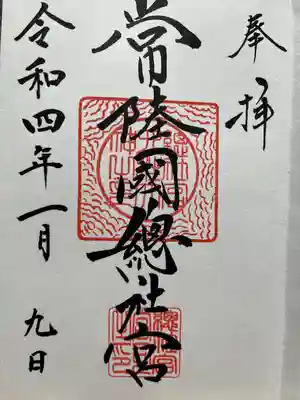 奉拝
常陸國總社宮
令和四年一月九日